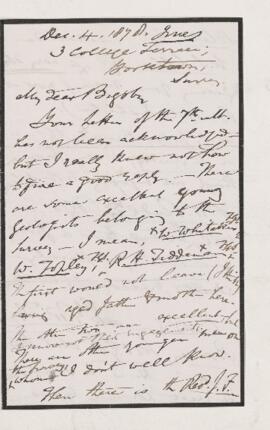 Dec. 4. 1878.
3 College Terrace,
Surrey
My dear Bigsby
Your letter of the 7th ult.
has not been acknowledged
but I really knew not how
to give a good reply. — There
are some excellent young
Geologists belonging to the
Survey — I mean, W. Whitaker
W. Topley, & R. H. Tiddeman
first would not leave
having aged father & mother here.
The other two are excellent
There are other younger men on
whom I don't well know.
Then there is the Revd. J. F.